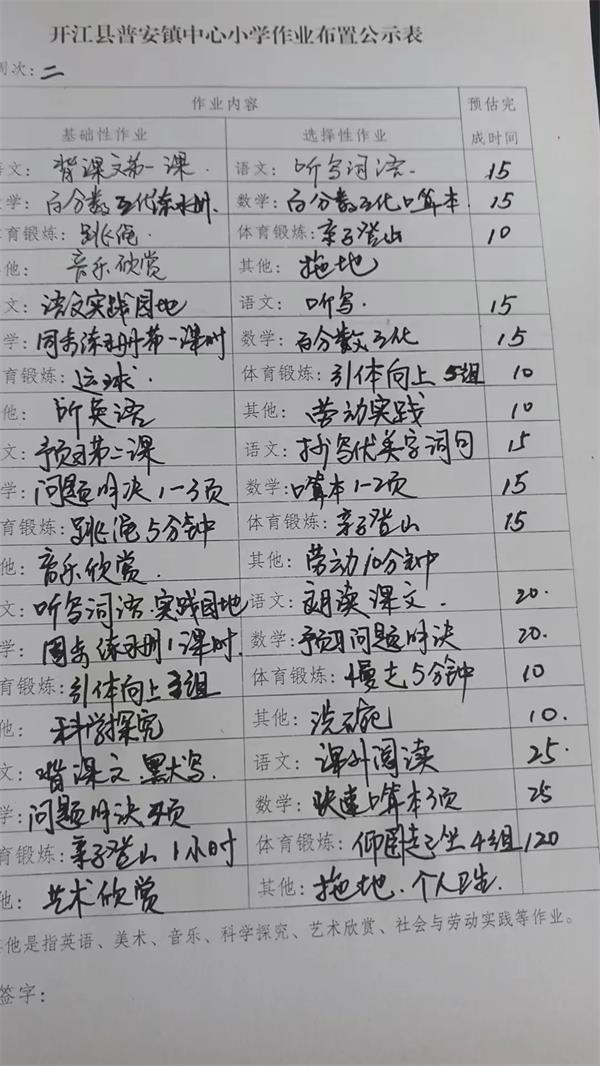 开江县普安镇中心小学作业布置公示表
周次：二
作业内容 预估完成时间
基础性作业 选择性作业
语文：背课文第一课. 语文：听写词语. 15
数学：百分数互化练习册. 数学：百分数互化口算本. 15
体育锻炼：跳绳. 体育锻炼：亲子登山 10
其他：音乐欣赏 其他：拖地
语文：语文实践园地 语文：听写. 15
数学：同步练习册第一课时 数学：百分数互化 15
体育锻炼：运球. 体育锻炼：引体向上 5组 10
其他：听英语 其他：劳动实践 10
语文：预习第二课 语文：抄写优美字词句 15
数学：问题解决 1-3页 数学：口算本1-2页 15
体育锻炼：跳绳5分钟 体育锻炼：亲子登山 15
其他：音乐欣赏. 其他：劳动10分钟
语文：听写词语.实践园地 语文：朗读课文. 20.
数学：同步练习册1课时. 数学：预习问题解决 20.
体育锻炼：引体向上 组 体育锻炼：慢走5分钟 10
其他：科学探究 其他：洗碗 10.
语文：背课文.默写. 语文：课外阅读 25.
数学：问题解决 页 数学：快速口算本3页 25
体育锻炼：亲子登山1小时 体育锻炼：仰卧起坐4组 120
其他：艺术欣赏 其他：拖地.个人卫生.
其他是指英语、美术、音乐、科学探究、艺术欣赏、社会与劳动实践等作业。
签字：